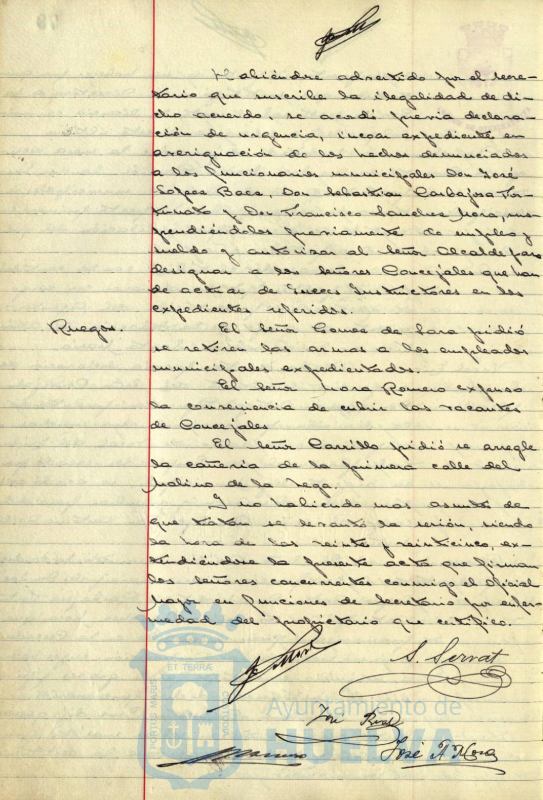 Habiéndose advertido por el Secre-
tario que suscribe la ilegalidad de di-
cho acuerdo, se acordó previa declara-
ción de urgencia, incoar expediente en
averiguación de los hechos denunciados
a los funcionarios municipales Don José
Lopez Baca, Don Sebastian Carbajosa For-
tunato y Don Francisco Sanchez Mora, sus-
pendiéndoles previamente de empleo y
sueldo y autorizar al Señor Alcalde para
designar a los Señores Concejales que han
de actuar de Jueces Instructores en los
expedientes referidos.
Ruegos. El Señor Ponce de Lara pidió
se retiren las armas a los empleados
municipales expedientados.
El Señor Mora Romero expuso
la conveniencia de cubrir las vacantes
de Concejales
El Señor Carrillo pidió se arregle
la cañeria de la primera calle del
Molino de la Vega.
Y no habiendo mas asuntos de
que tratar se levantó la sesión, siendo
la hora de las veinte y veinticinco, ex-
tendiéndose la presente acta que firman
los Señores concurrentes conmigo el Oficial
Mayor en funciones de Secretario por enfer-
medad del propietario que certifico.
S. Serrat
ET TERRÆ
PORTUS MARIS
Ayuntamiento de
José
HUELVA
José A. Mora